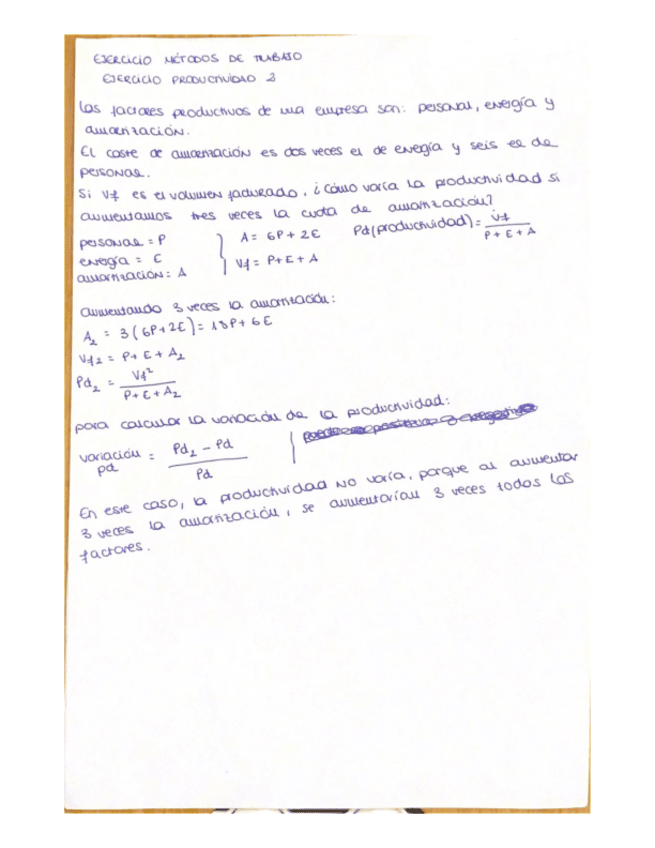 EJERCICIO MÉTODOS DE TRABAJO
EJERCICIO PRODUCTIVIDAD 3
Los factores productivos de una empresa son: personal, energía y
amortización.
El coste de amortización es dos veces el de energía y seis el de
personal.
Si Vf es el volumen facturado, ¿cómo varía la productividad si
aumentamos tres veces la cuota de amortización?
personal = P
energía = E
amortización: A
A = 6P + 2E
Vf = P + E + A
Pd (productividad) = Vf / P + E + A
aumentando 3 veces la amortización:
A₂ = 3(6P + 2E) = 18P + 6E
Vf₂ = P + E + A₂
Pd₂ = Vf² / P + E + A₂
para calcular la variación de la productividad:
variación pd = Pd₂ - Pd / Pd
En este caso, la productividad no varía, porque al aumentar
3 veces la amortización, se aumentarían 3 veces todos los
factores.